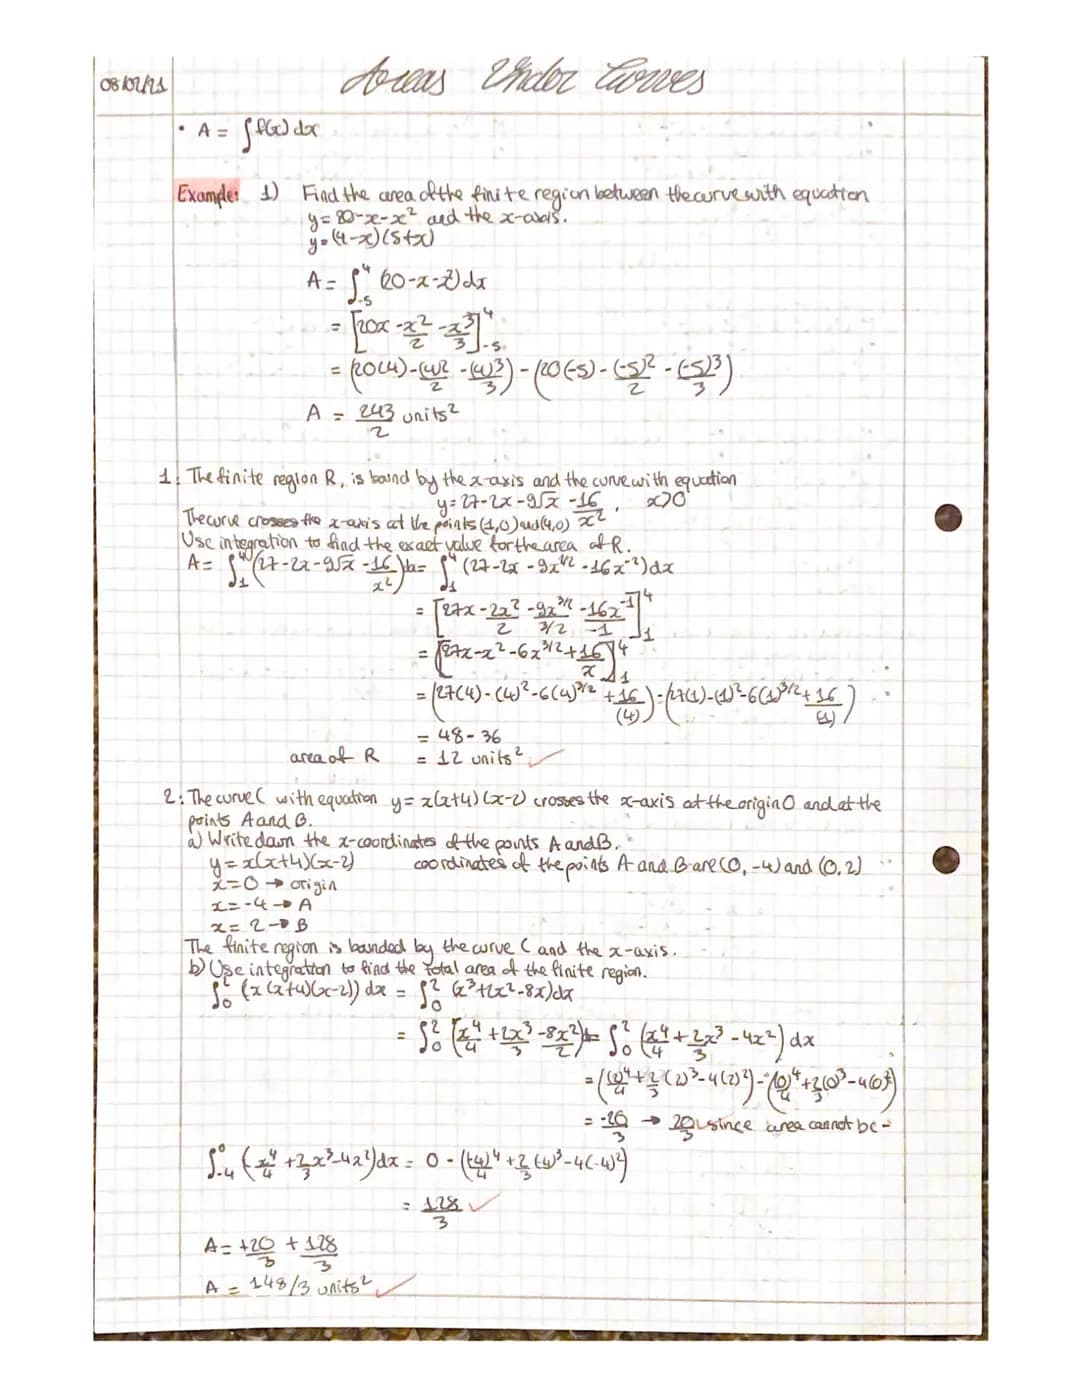 08/02/21
Areas Under Curves
• A = ∫ f(x) dx
Example: 1) Find the area of the finite region between the curve with equation
y = 20-x-x² and the x-axis.
y = (4-x)(5+x)
A = ∫₋₅⁴ (20-x-x²) dx
= [20x - x²/2 - x³/3]₋₅⁴
= (20(4) - (4)²/2 - (4)³/3) - (20(-5) - (-5)²/2 - (-5)³/3)
A = 243/2 units²
1. The finite region R, is bound by the x-axis and the curve with equation
y = 27-2x-9√x - 16/x², x>0
The curve crosses the x-axis at the points (1,0) and (4,0)
Use integration to find the exact value for the area of R.
A = ∫₁⁴ (27-2x-9√x - 16/x²) dx = ∫₁⁴ (27-2x-9x^1/2 - 16x⁻²) dx
= [27x - 2x²/2 - 9x^3/2/3/2 - 16x⁻¹/-1]₁⁴
= [27x - x² - 6x^3/2 + 16/x]₁⁴
= (27(4) - (4)² - 6(4)^3/2 + 16/(4)) - (27(1) - (1)² - 6(1)^3/2 + 16/(1))
= 48 - 36
area of R = 12 units² ✓
2: The curve C with equation y = x(x+4)(x-2) crosses the x-axis at the origin O and at the
points A and B.
a) Write down the x-coordinates of the points A and B.
y = x(x+4)(x-2) coordinates of the points A and B are (0, -4) and (0, 2)
x=0 → origin
x=-4 → A
x= 2 → B
The finite region is bounded by the curve C and the x-axis.
b) Use integration to find the total area of the finite region.
∫₀² (x(x+4)(x-2)) dx = ∫₀² (x³+2x²-8x) dx
= ∫₀² [x⁴/4 + 2x³/3 - 8x²/2] dx = ∫₀² (x⁴/4 + 2/3 x³ - 4x²) dx
= ((2)⁴/4 + 2/3 (2)³ - 4(2)²) - ((0)⁴/4 + 2/3 (0)³ - 4(0)²)
= -20/3 → 20/3 since area cannot be -
∫₋₄⁰ (x⁴/4 + 2/3 x³ - 4x²) dx = 0 - ((-4)⁴/4 + 2/3 (-4)³ - 4(-4)²)
= 128/3 ✓
A = +20/3 + 128/3
A = 148/3 units² ✓